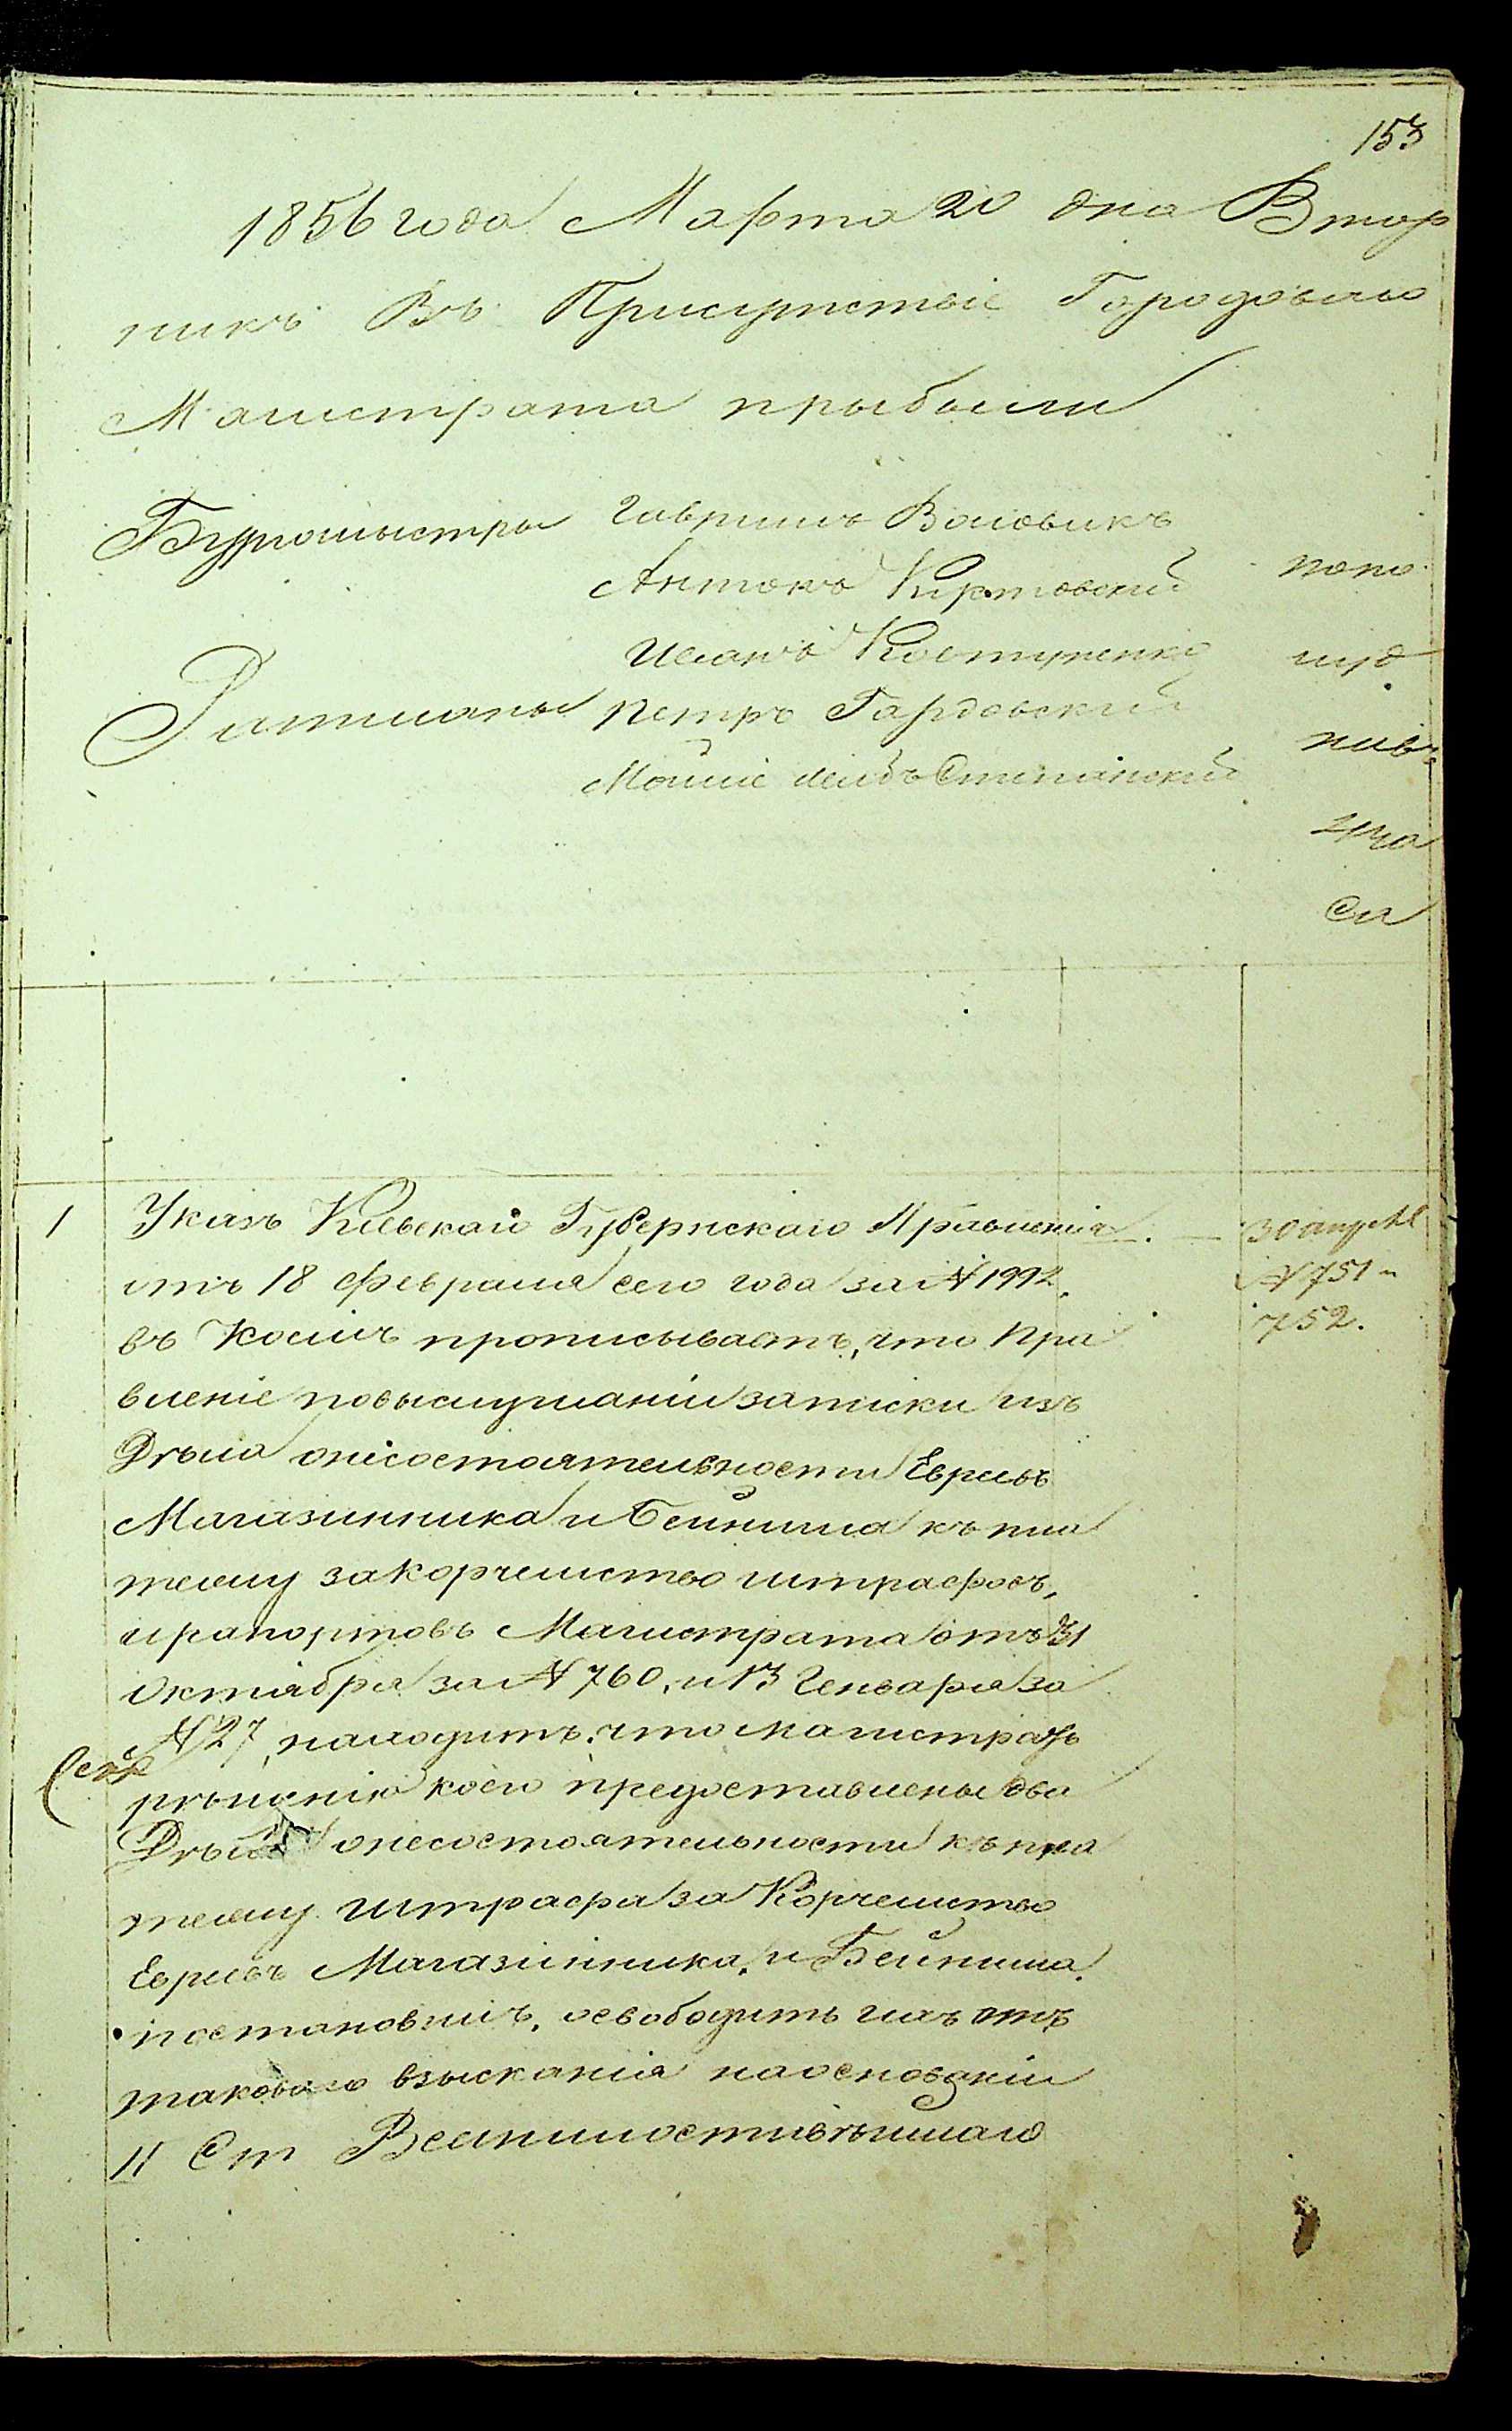 153
1856 года Марта 20 дна Втор
никъ Въ Присутствіе Городоваго
Магистрата прыбыли
Бургомыстры Гаврилъ Воловикъ
Антонъ Киртовский попо
Иванъ Костученко луд
Ратманы Петръ Гардовский
Мошие Лейбъ Степанский нив
4 ча
са
1 Указъ Киевскаго Губернскаго Правленія. — 30 апреля
отъ 18 февраля сего года за № 1992. № 751 и
въ коемъ прописываетъ, что Пра 752.
вленіе повыслушаніи записки изъ
Дѣла онесостоятельности Евреевъ
Магазинника и Бейниша къ пла
тежу закорчемство штрафовъ,
и рапортовъ Магистрата отъ 31
октября за № 760, и 13 Генваря за
№ 27, находитъ: что магистратъ
рѣшенію коего предоставлены два
Дѣла онесостоятельности къ пла
тежу штрафа за Корчемство
Евреевъ Магазінника, и Бейниша.
постановилъ, освободить ихъ отъ
таковаго взысканія наоснованіи
11 Ст Всемилостивѣйшаго